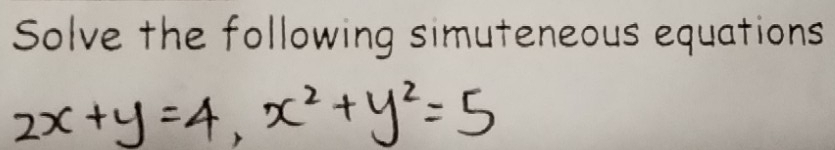 Solve the following simuteneous equations
2x + y = 4, x² + y² = 5